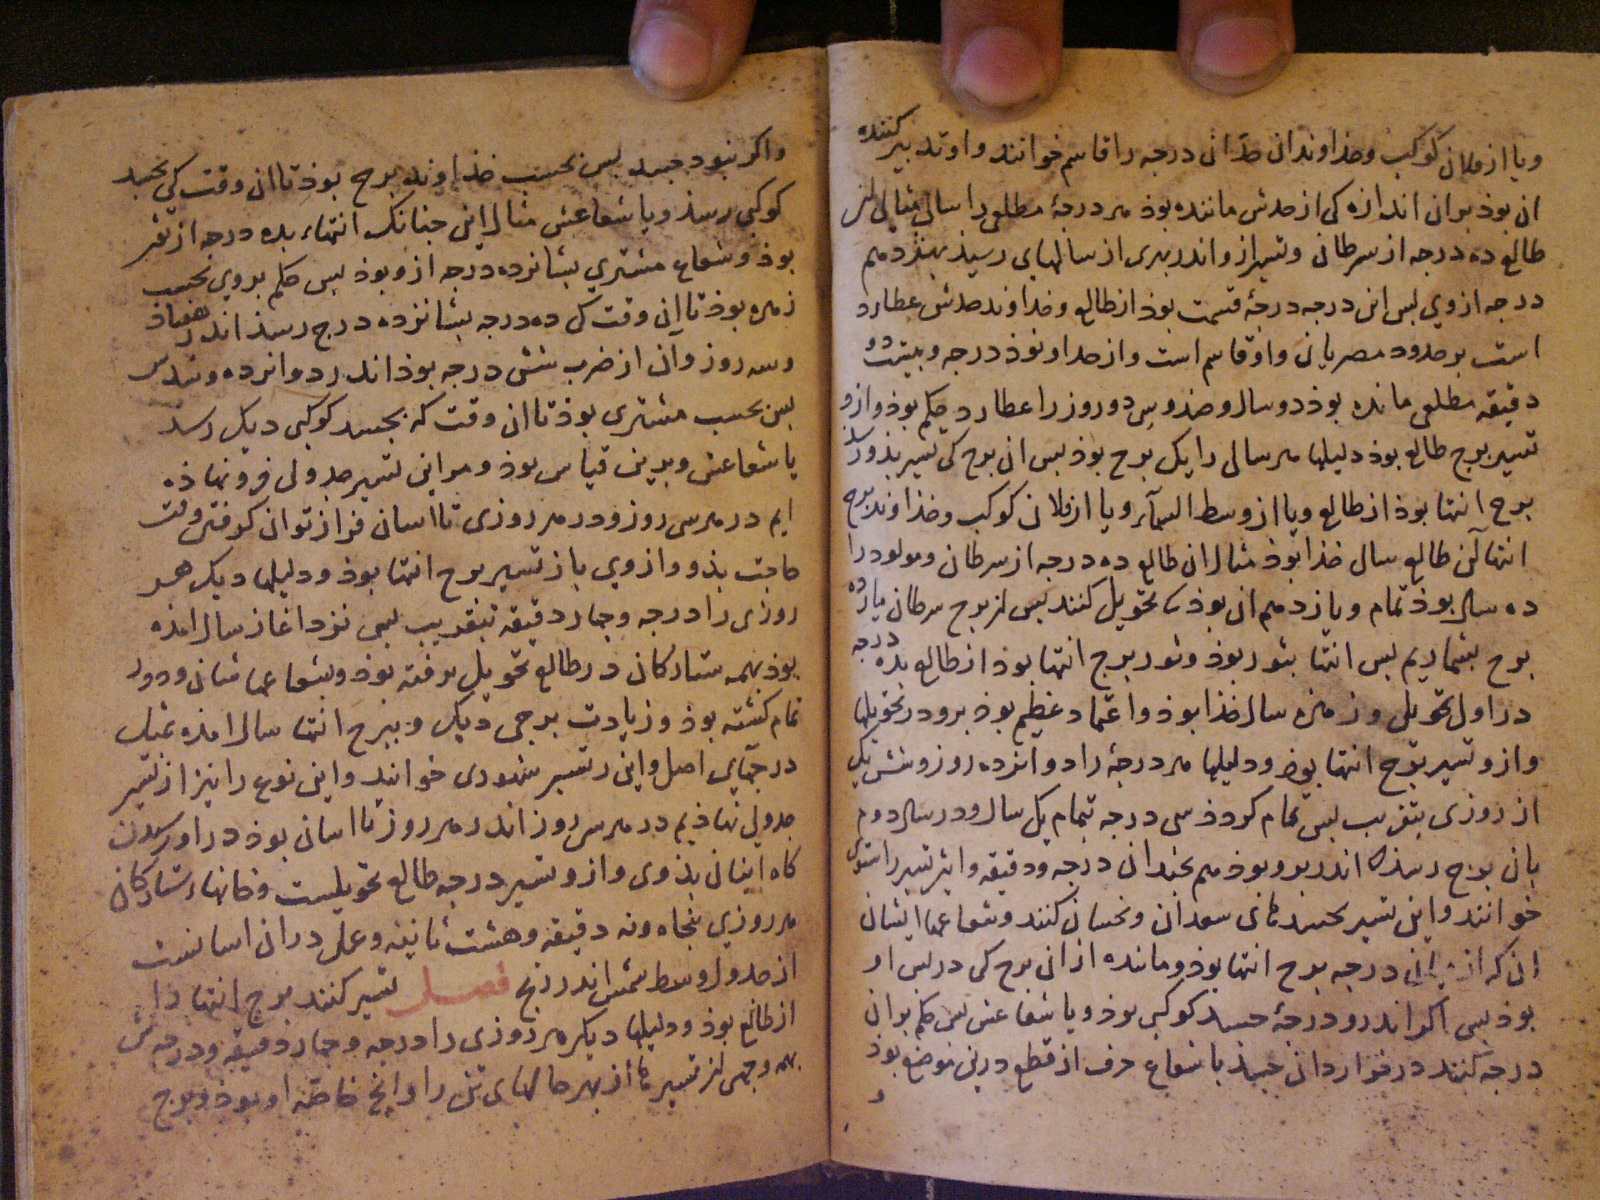 ویا از فلان کوکب وخذاوندان حد آن درجه را قاسم خوانند واو تدبیر کننده
ان بوذ بران اندازه کی از حدش مانده بوذ هر درجهٔ مطلعی را سالی مثالش
طالع ده درجه از سرطان وتسییر از و اندر بهری از سالهای رسیذ بهفدهم
درجه از وی بس این درجه درجهٔ قسمت بوذ از طالع وخداوند حدش عطارد
است بر حدود مصریان واو قاسم است واز حد او نوذ درجه وبیست و دو
دقیقه مطلعی مانده بوذ دو سال وصد و سی دو روز را عطارد حکم بوذ واز و
تسییر برج طالع بوذ دلیلها هر سالی را یک برج بوذ بس ان برج کی تسییر بذو رسذ
برج انتها بوذ از طالع ویا از وسط السماء ویا از فلان کوکب وخذاوند برج
انتها آن طالع سال خذا بوذ مثال ان طالع ده درجه از سرطان ومولود را
ده سال بوذ تمام ویازدهم ان بوذ کی تحویل کنند بس از برج سرطان یازده
برج بشماریم بس انتها بثور بوذ وثور برج انتها بوذ از طالع بده درجه
در اول تحویلی وزهره سال خذا بوذ واعتماد عظیم بوذ برو در تحویلها
واز و تسییر برج انتها بوذ ودلیلها هر درجهٔ را دوانزده روز وشش یکی
از روزی بتقریب بس تمام کردذ سی درجه تمام یک سال ودر سال دوم
بان برج رسذ اندر برو بوذ هم بخندان درجه ودقیقه واین تسییر را ستوی
خوانند واین تسییر بجسدهای سعدان ونحسان کنند وشعاعها ایشان
ان که از درجه برج انتها بوذ ومانده از ان برج کی در بس او
بوذ بس اکر اندرو درجهٔ جسد کوکبی بوذ ویا شعاعش بس حکم بران
درجه کنند در خزاردان جسد با شعاع حرف از قطع درین موضع بوذ
و
واکر نبود جسد بس بحسب خذاوند برج بوذ تا ان وقت کی بجسد
کوکبی رسذ ویا شعاعش مثال این جنانک انتهاء بده درجه از ثور
بوذ وشعاع مشتری بشانزده درجه از و بوذ بس حکم بر وی بحسب
زهره بوذ تا آن وقت کی ده درجه بشانزده درج رسذ اندر هفتاد
وسه روز وآن از ضرب شش درجه بوذ اندر دوانزده وسدس
بس بحسب مشتری بوذ تا ان وقت که بجسد کوکبی دیکر رسد
یا شعاعش وبدین قیاس بوذ ومر این تسییر جدولی فرو نهاذه
ایم در هر سی روز ودر هر روزی تا اسان فراز توان کرفتن وقت
حاجت بذو واز وی باز تسییر برج انتها بوذ ودلیلها دیک هر
روزی را درجه وجهار دقیقه بتقریب بس نزد اغاز سال امذه
بوذ بهمه ستارکان در طالع تحویل برفته بوذ وبشعاعها شان ودور
تمام کشته بوذ وزیادت برجی دیک وببرج انتها سال امذه بمثل
درجهای اصل واین تسییر شهوری خوانند واین نوع را نیز از تسییر
جدول نهاذیم در هر سی روز اندر هر روز تا اسان بوذ در اوردن
کاه ایشان بذوی واز و تسییر درجه طالع تحویلست وخانهاء ستارکان
هر روزی بنجاه ونه دقیقه وهشت ثانیه وعمل در ان اسانست
از جدول وسط شمس اندر زیج فصل تسییر کنند برج انتها را
از طالع بوذ ودلیلها دیکر هر روزی را درجه وجهار دقیقه ودرجه ش
بهمه وجهی از تسییرها از بهر حالهای تن را وانچ خاصه او بوذ وبرج